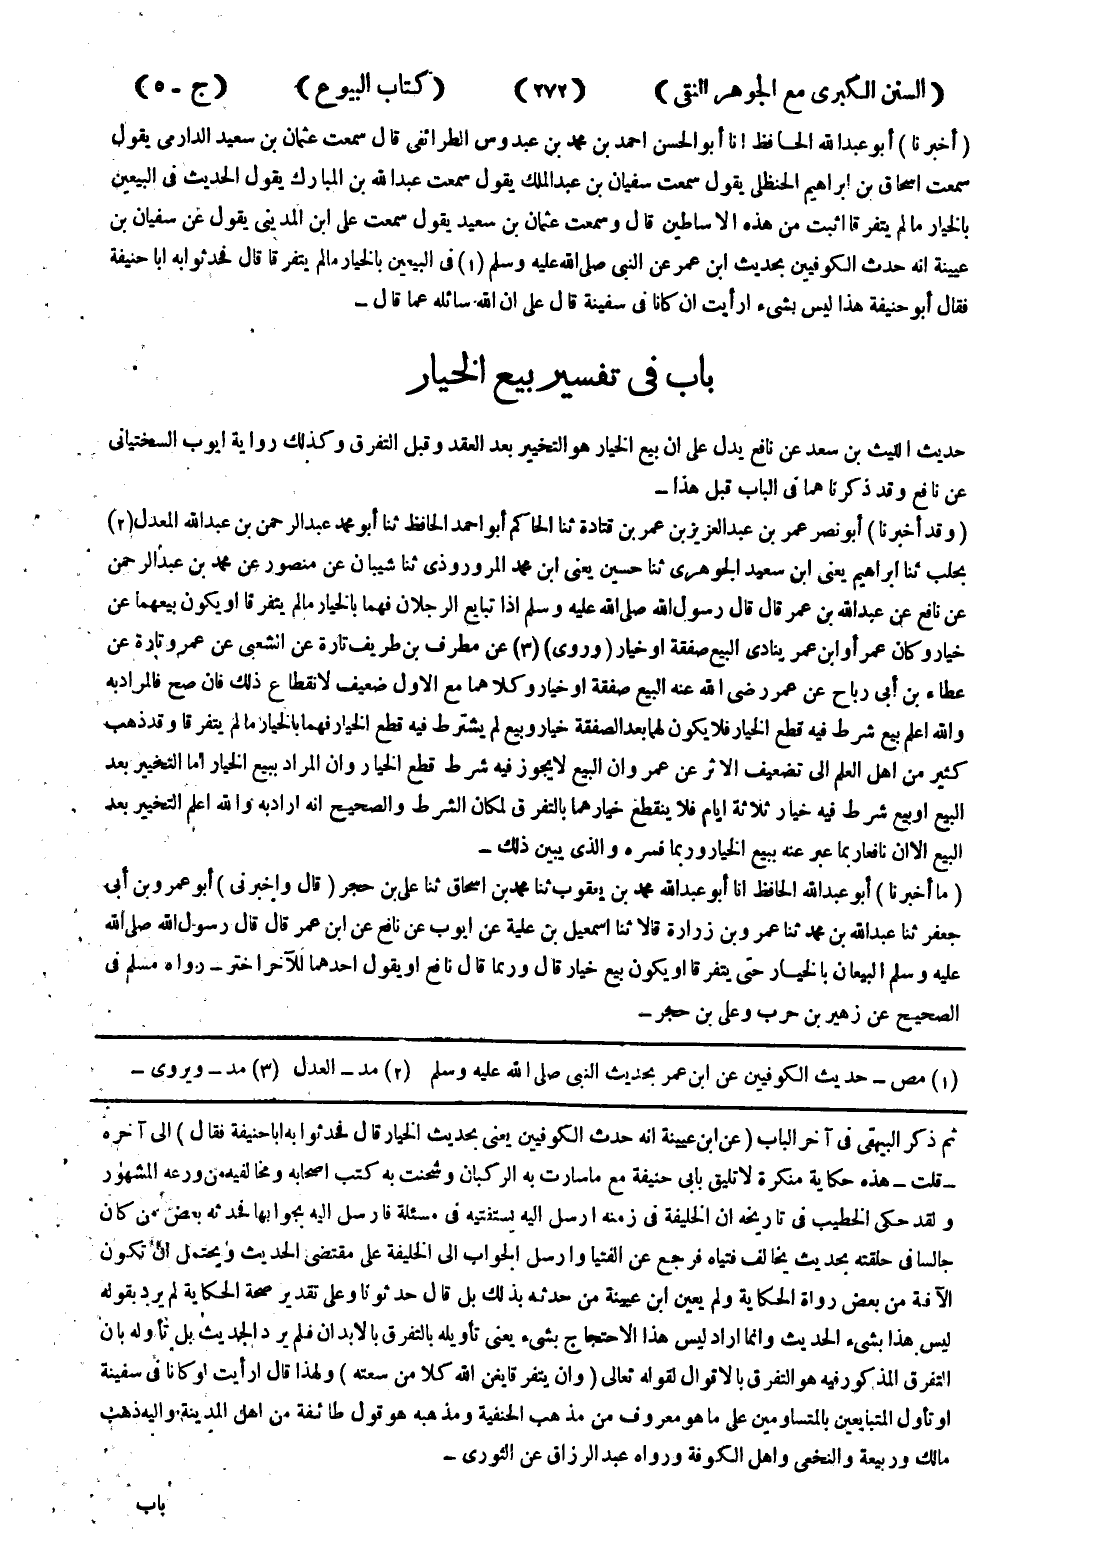 (السنن الكبرى مع الجوهر النقى) (٢٧٢) (كتاب البيوع) (ج - ٥)
(أخبرنا) أبو عبدالله الحافظ انا أبو الحسن احمد بن محمد بن عبدوس الطرائفى قال سمعت عثمان بن سعيد الدارمى يقول
سمعت اسحاق بن ابراهيم الحنظلى يقول سمعت سفيان بن عبدالملك يقول سمعت عبدالله بن المبارك يقول الحديث فى البيعين
بالخيار مالم يتفرقا اثبت من هذه الاساطين قال وسمعت عثمان بن سعيد يقول سمعت على ابن المدينى يقول عن سفيان بن
عيينة انه حدث الكوفيين بحديث ابن عمر عن النبى صلى الله عليه وسلم (١) فى البيعين بالخيار مالم يتفرقا قال فحدثوا به ابا حنيفة
فقال أبو حنيفة هذا ليس بشىء ارأيت ان كانا فى سفينة قال على ان الله سائله عما قال ـ
باب فى تفسير بيع الخيار
حديث الليث بن سعد عن نافع يدل على ان بيع الخيار هو التخيير بعد العقد وقبل التفرق وكذلك رواية ايوب السختيانى
عن نافع وقد ذكرنا هما فى الباب قبل هذا ـ
(وقد أخبرنا) أبو نصر عمر بن عبدالعزيز بن عمر بن قتادة ثنا الحاكم أبو احمد الحافظ ثنا أبو محمد عبدالرحمن بن عبدالله المعدل (٢)
بحلب ثنا ابراهيم يعنى ابن سعيد الجوهرى ثنا حسين يعنى ابن محمد المروروذى ثنا شيبان عن منصور عن محمد بن عبدالرحمن
عن نافع عن عبدالله بن عمر قال قال رسول الله صلى الله عليه وسلم اذا تبايع الرجلان فهما بالخيار مالم يتفرقا او يكون بيعهما عن
خيار وكان عمر أو ابن عمر ينادى البيع صفقة او خيار (وروى) (٣) عن مطرف بن طريف تارة عن الشعبى عن عمر وتارة عن
عطاء بن أبى رباح عن عمر رضى الله عنه البيع صفقة او خيار وكلاهما مع الاول ضعيف لانقطاع ذلك فان صح فالمراد به
والله اعلم بيع شرط فيه قطع الخيار فلا يكون لهما بعد الصفقة خيار وبيع لم يشترط فيه قطع الخيار فهما بالخيار مالم يتفرقا وقد ذهب
كثير من اهل العلم الى تضعيف الاثر عن عمر وان البيع لا يجوز فيه شرط قطع الخيار وان المراد ببيع الخيار اما التخيير بعد
البيع او بيع شرط فيه خيار ثلاثة ايام فلا ينقطع خيارهما بالتفرق لمكان الشرط والصحيح انه اراد به والله اعلم التخيير بعد
البيع الا ان نافعا ربما عبر عنه ببيع الخيار وربما فسره والذى يبين ذلك ـ
(ما أخبرنا) أبو عبدالله الحافظ انا أبو عبدالله محمد بن يعقوب ثنا محمد بن اسحاق ثنا على بن حجر (قال واخبرنى) أبو عمرو بن أبى
جعفر ثنا عبدالله بن محمد ثنا عمرو بن زرارة قالا ثنا اسمعيل بن علية عن ايوب عن نافع عن ابن عمر قال قال رسول الله صلى الله
عليه وسلم البيعان بالخيار حتى يتفرقا او يكون بيع خيار قال وربما قال نافع او يقول احدهما للآخر اختر ـ رواه مسلم فى
الصحيح عن زهير بن حرب وعلى بن حجر ـ
(١) مص ـ حديث الكوفيين عن ابن عمر بحديث النبى صلى الله عليه وسلم (٢) مد ـ العدل (٣) مد ـ ويروى ـ
ثم ذكر البيهقى فى آخر الباب (عن ابن عيينة انه حدث الكوفيين يعنى بحديث الخيار قال فحدثوا به ابا حنيفة فقال) الى آخره
ـ قلت ـ هذه حكاية منكرة لا تليق بابى حنيفة مع ما سارت به الركبان وشحنت به كتب اصحابه ومخالفيه من ورعه المشهور
ولقد حكى الخطيب فى تاريخه ان الخليفة فى زمنه ارسل اليه يستفتيه فى مسئلة فارسل اليه بجوابها فحدثه بعض من كان
جالسا فى حلقته بحديث يخالف فتياه فرجع عن الفتيا وارسل الجواب الى الخليفة على مقتضى الحديث ويحتمل ان تكون
الآفة من بعض رواة الحكاية ولم يعين ابن عيينة من حدثه بذلك بل قال حدثونا وعلى تقدير صحة الحكاية لم يرد بقوله
ليس هذا بشىء الحديث وانما اراد ليس هذا الاحتجاج بشىء يعنى تأويله بالتفرق بالابدان فلم يرد الحديث بل تأوله بان
التفرق المذكور فيه هو التفرق بالاقوال لقوله تعالى (وان يتفرقا يغن الله كلا من سعته) ولهذا قال ارأيت او كانا فى سفينة
او تأول المتبايعين بالمتساومين على ما هو معروف من مذهب الحنفية ومذهبه هو قول طائفة من اهل المدينة واليه ذهب
مالك وربيعة والنخعى واهل الكوفة ورواه عبدالرزاق عن الثورى ـ
باب